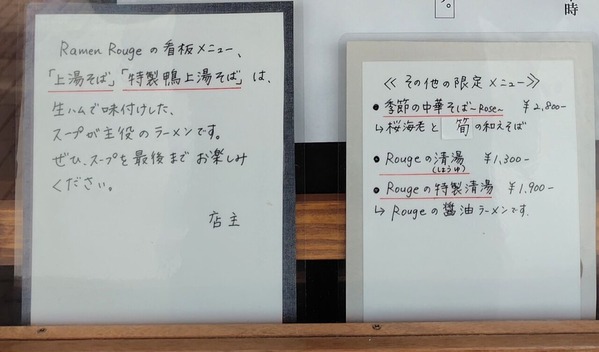 Ramen Rougeの看板メニュー、
「上湯そば」「特製鴨上湯そば」は、
生ハムで味付けした、
スープが主役のラーメンです。
ぜひ、スープを最後までお楽しみ
ください。
店主
時
。
≪その他の限定メニュー≫
●季節の中華そば~Rose~ ¥2,800-
↳桜海老と筍の和えそば
●Rougeの清湯 ¥1,300-
(しょうゆ)
●Rougeの特製清湯 ¥1,900-
↳Rougeの醤油ラーメンです。